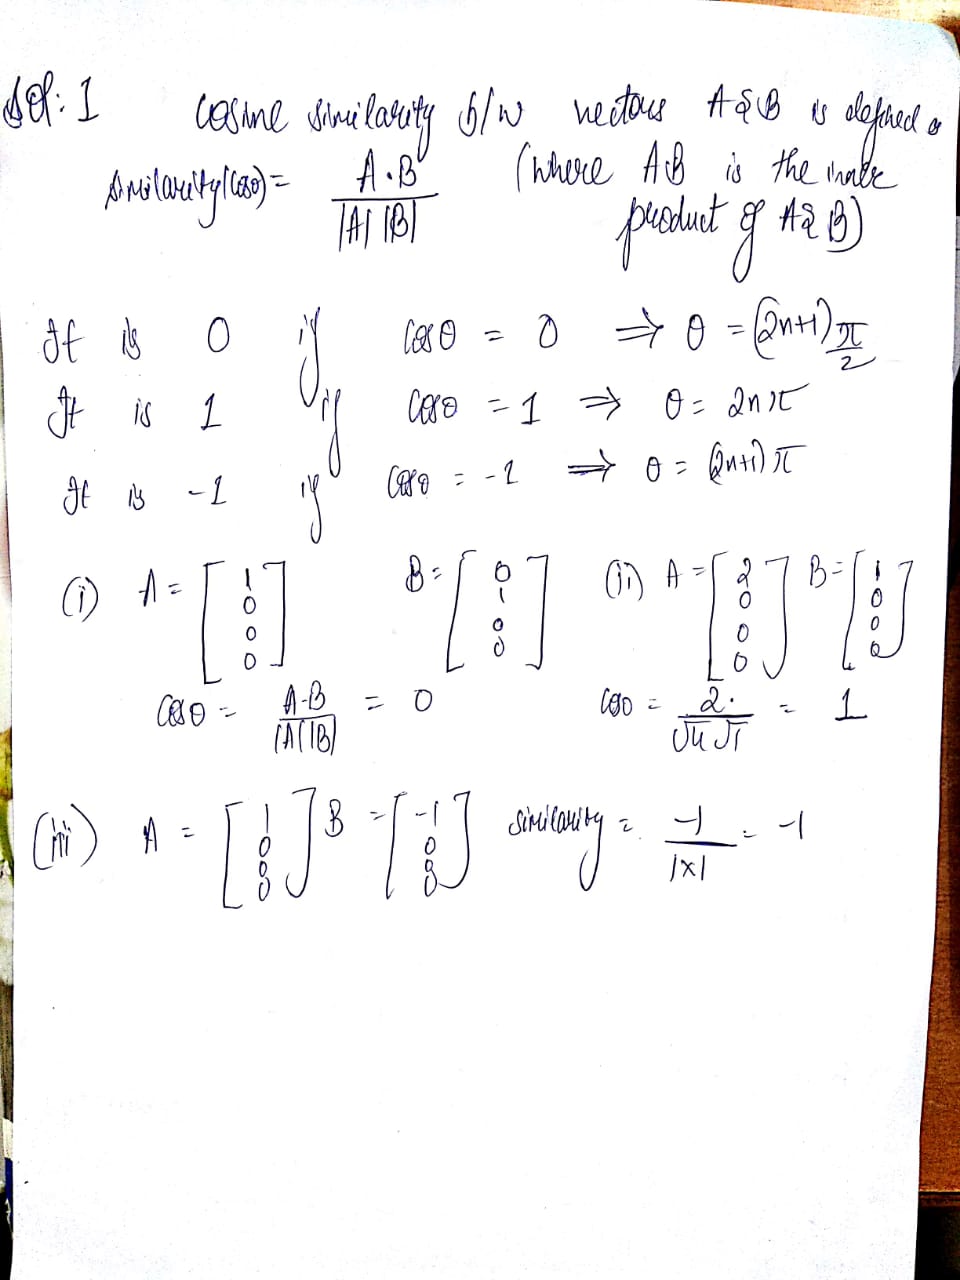 Sol: 1 Cosine similarity b/w vectors A & B is defined as
Similarity(cosθ) = A·B / |A| |B| (where AB is the inner
product of A & B)
It is 0 if cosθ = 0 ⇒ θ = (2n+1)π/2
It is 1 if cosθ = 1 ⇒ θ = 2nπ
It is -1 if cosθ = -1 ⇒ θ = (2n+1)π
(i) A = [1 0 0 0] B = [0 1 0 0] (ii) A = [2 0 0 0] B = [1 0 0 0]
cosθ = A·B / |A| |B| = 0 cosθ = 2· / √4 √1 = 1
(iii) A = [1 0 0 0] B = [-1 0 0 0] similarity = -1 / 1×1 = -1